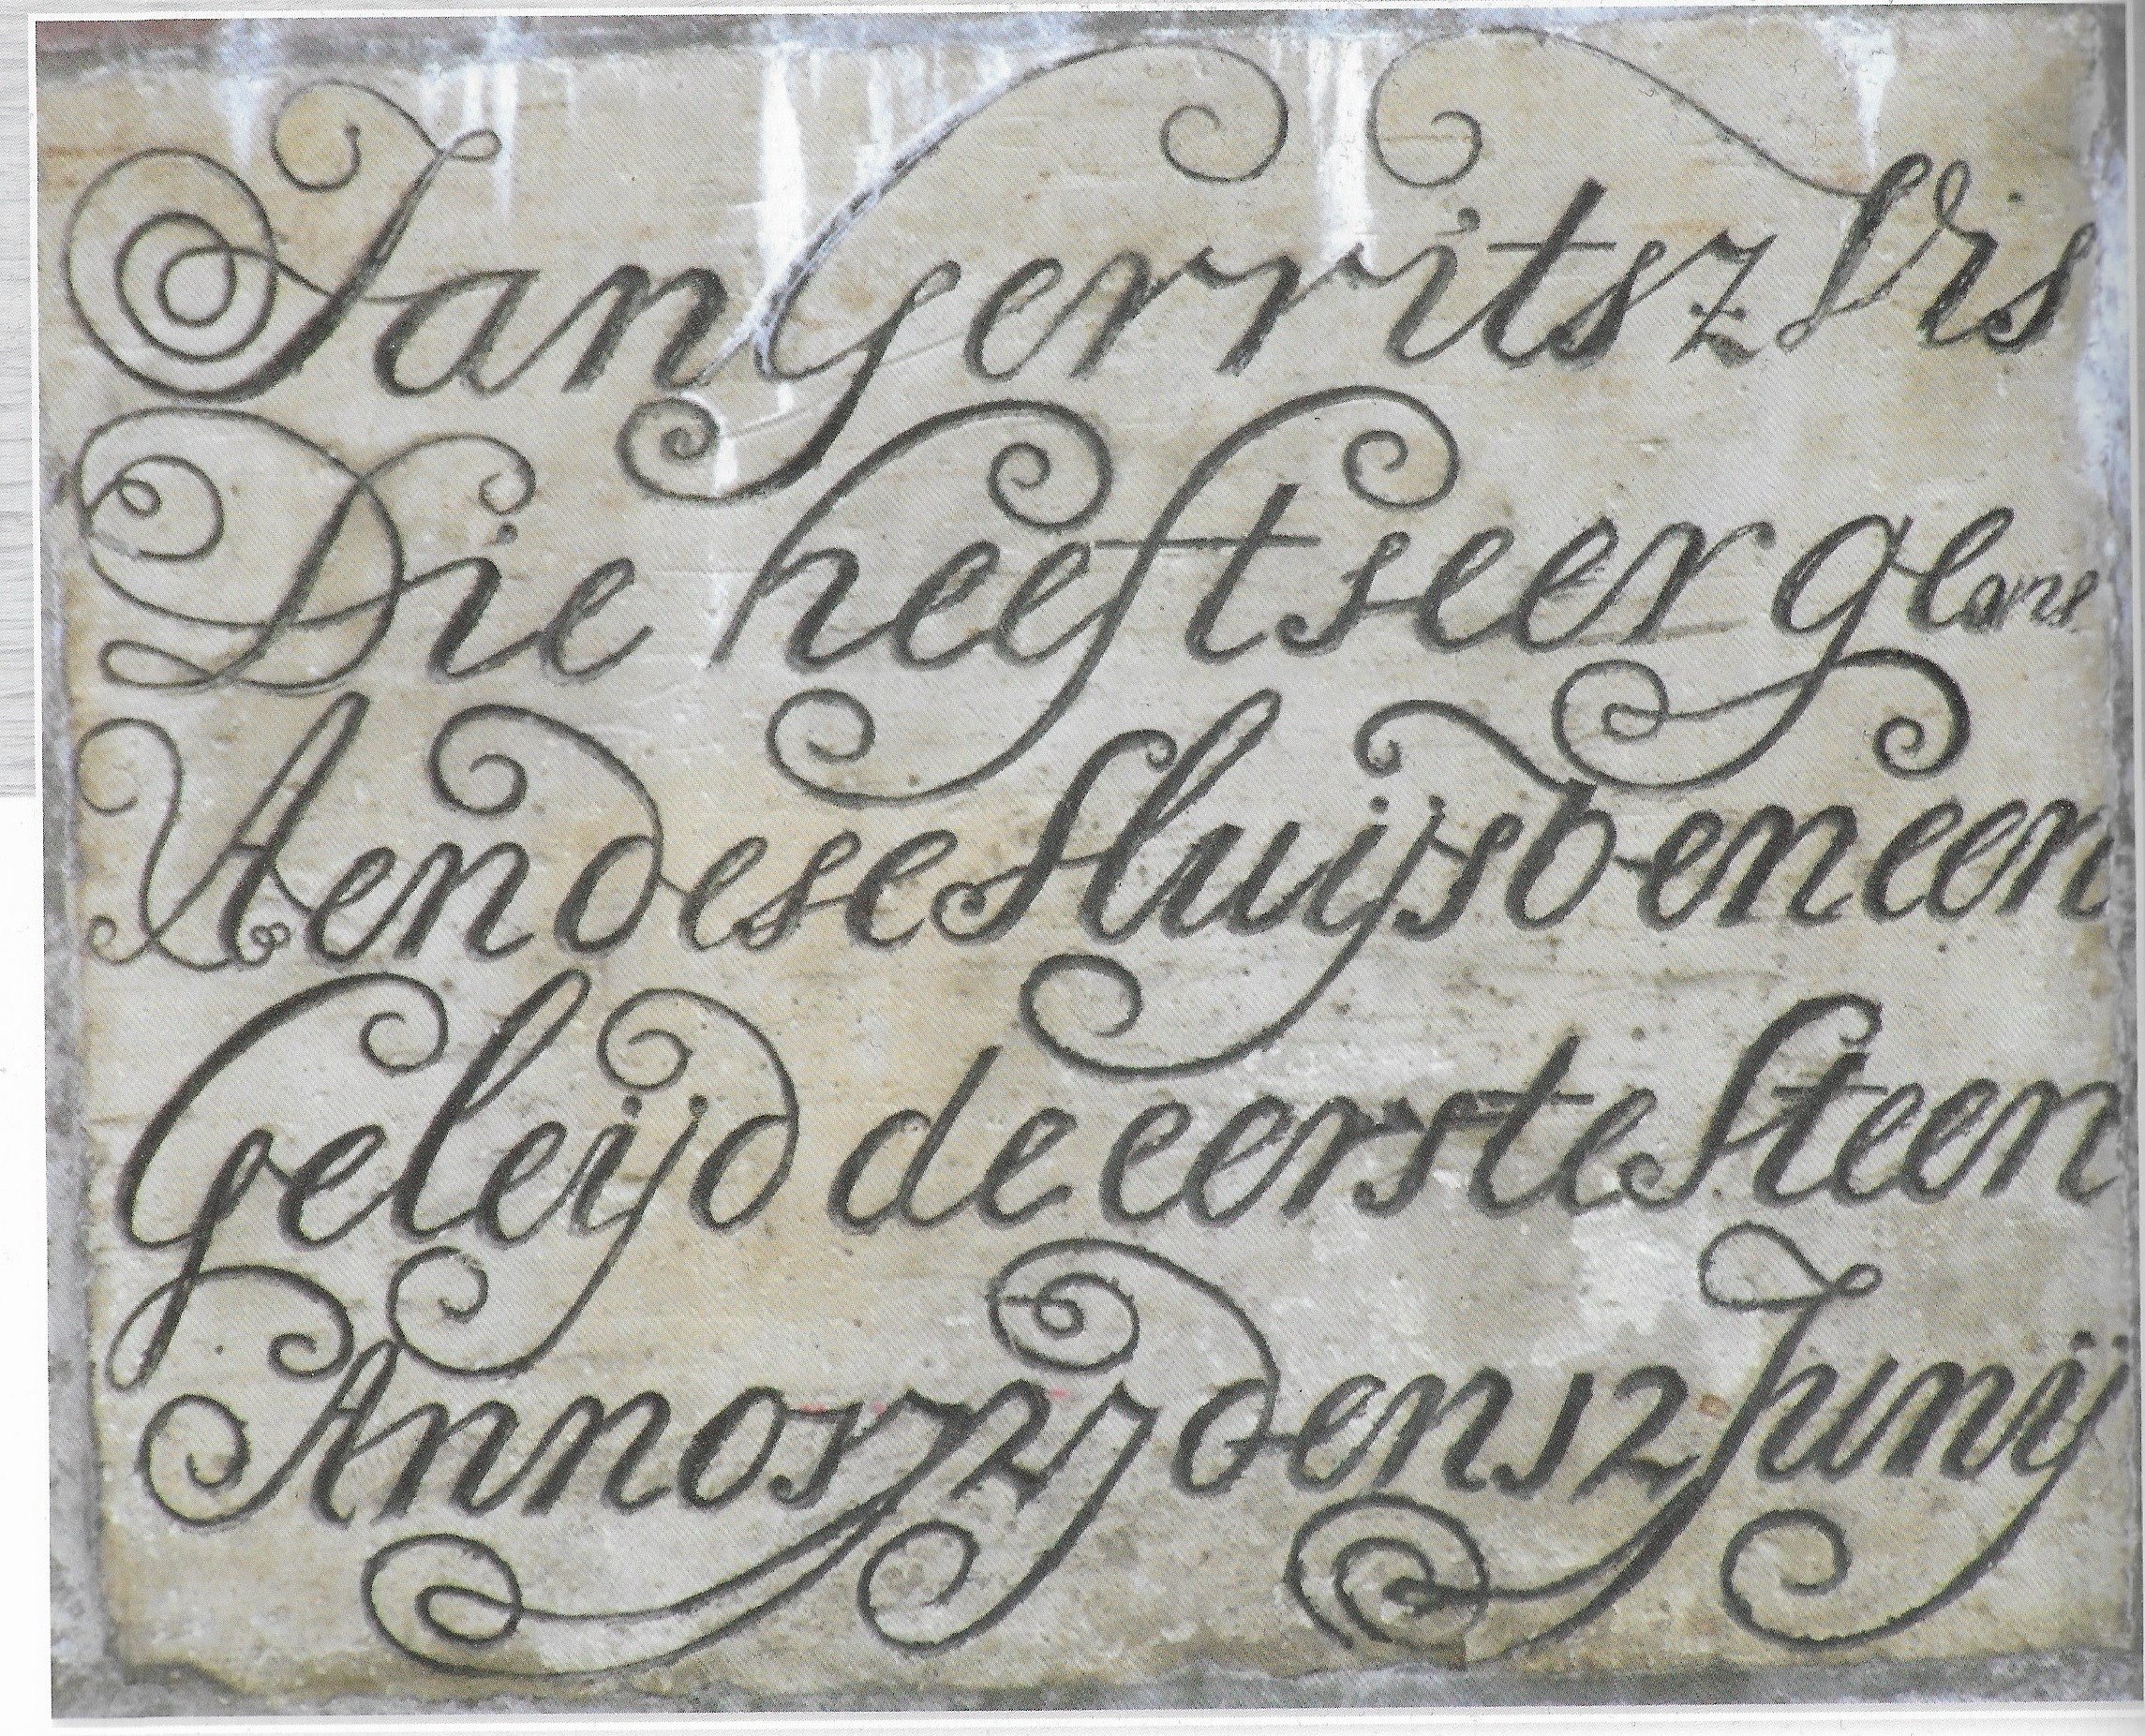 Jan Gerritsz Vis
Die heeft seer gelans
Aen dese Sluijs beneen
Geleijd de eerste Steen
Anno 1727 den 12 Junij